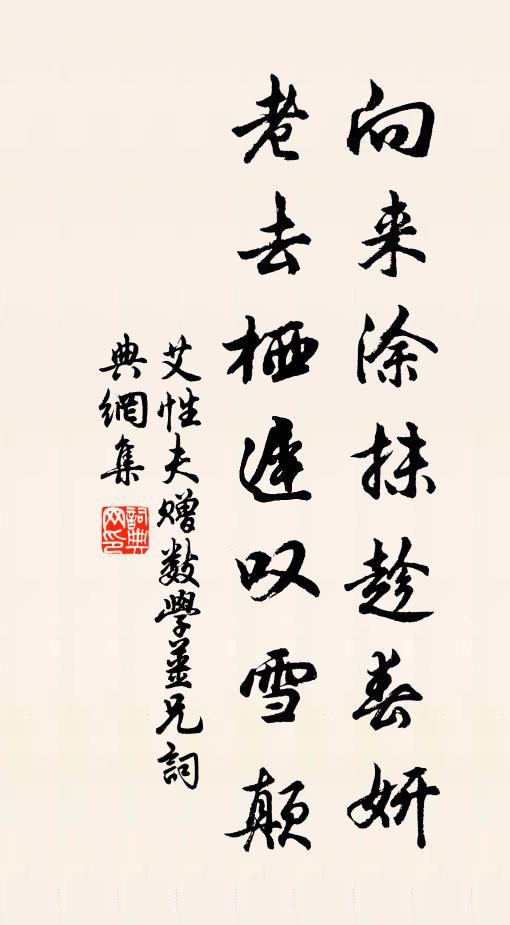 向来涂抹趁春妍
老去栖迟叹雪颠
艾性夫赠数学姜兄詞
典網集
詞典
网印